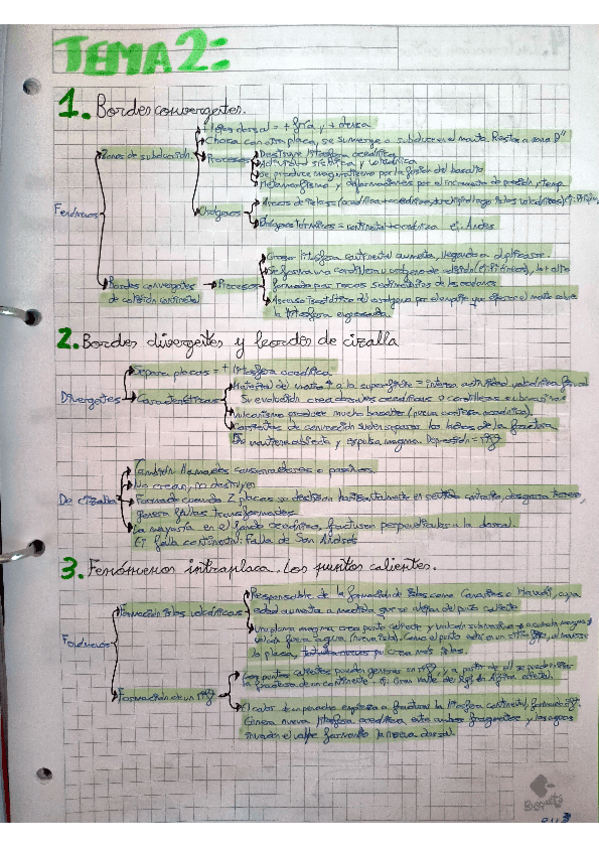 TEMA 2:
1. Bordes convergentes.
+ lejos dorsal = + fría y + densa
Zonas de subducción
Choca con otra placa, se sumerge o subduce en el manto. Respecto a zona B"
Procesos
Destruye litosfera oceánica
Actividad sísmica y volcánica
Se produce magmatismo por la fusión del basalto
Metamorfismo y deformaciones por el incremento de presión y temp
Fenómenos
Orógenos
Arcos de islas (oceánica + oceánica, archipiélago islas volcánicas) Ej:
Orógenos térmicos = continental + oceánica Ej: Andes
Grosor litosfera continental aumenta, llegando a duplicarse.
Se forma una cordillera u orógeno de colisión (Ej: Pirineos), lo alto
Bordes convergentes de colisión continental
Procesos
formada por rocas sedimentarias de los océanos
Ascenso isostático del orógeno por el empuje que ejerce el manto sobre
la litosfera engrosada.
2. Bordes divergentes y bordes de cizalla
Separa placas = + litosfera oceánica.
Divergentes
Características
Material del manto a la superficie = intensa actividad volcánica
Su evolución crea dorsales oceánicas o cordilleras submarinas
Vulcanismo produce mucho basalto (nueva corteza oceánica).
Corrientes de convección separan los lados de la fractura
La mantienen abierta y expulsa magma. Depresión = rift
También llamados conservadores o pasivos.
No crean, no destruyen
De cizalla
Formado cuando 2 placas se deslizan horizontalmente en sentido contrario, desgarra terreno,
genera fallas transformantes
La mayoría en el fondo oceánico, fracturan perpendicular a la dorsal.
Ej: falla continental: Falla de San Andrés
3. Fenómenos intraplaca. Los puntos calientes.
Responsable de la formación de islas como Canarias o Hawái, cuya
Formación islas volcánicas
edad aumenta a medida que se alejan del punto caliente
Una pluma magma crea punto caliente y volcán submarino
volcán forma laguna (nueva isla). Como el punto está en un sitio fijo, al moverse
Fenómenos
la placa, crea más islas.
Los puntos calientes pueden generar un rift y a partir de ahí se produce
la fractura de un continente. Ej. Gran Valle del Rift de África oriental.
Formación de un rift
El calor de un penacho empieza a fracturar la litosfera continental, formando rift.
Genera nueva litosfera oceánica entre ambos fragmentos y las aguas
invaden el valle formando la nueva dorsal.